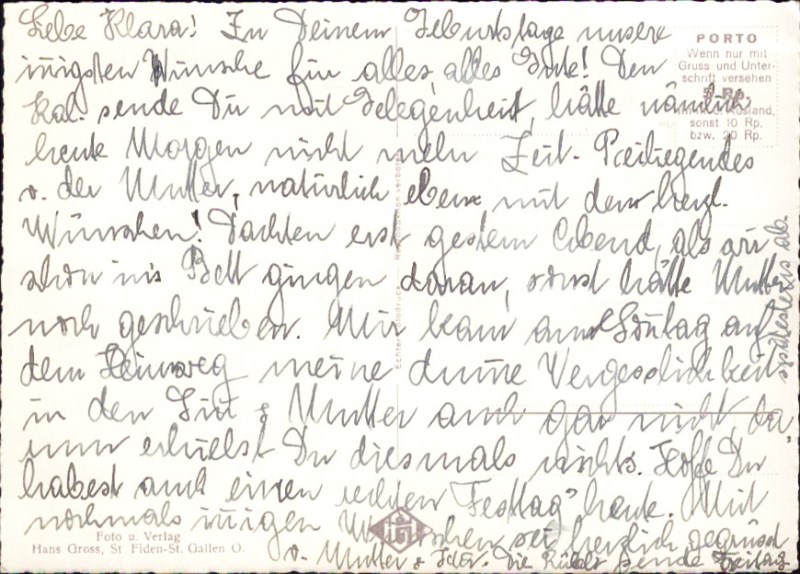 Liebe Klara! Zu Deinem Geburtstage unsere
innigsten Wünsche für alles, alles Gute! Den
Kal. sende Dir mit Gelegenheit, hätte nämlich
heute Morgen nicht mehr Zeit. Beiliegendes
v. der Mutter, natürlich ebens mit den herzl.
Wünschen! Dachten erst gestern Abend, als wir
schon ins Bett gingen daran, sonst hätte Mutter
noch geschrieben. Mir kam am Sontag auf
dem Heimweg meine dumme Vergesslichkeit
in den Sin & Mutter auch gar nicht, da,
nun erhielst Du diesmals nichts. Hoffe Du
habest auch einen rechten "Festtag" heute. Mit
nochmals innigen Wünschen sei herzlich gegrüsst
v. Mutter & Die sende Freitag
spätestens ab.
PORTO
Wenn nur mit
Gruss und Unter-
schrift versehen
5 Rp.
Ausland,
sonst 10 Rp.
bzw. 20 Rp.
Foto u. Verlag
Hans Gross, St Fiden-St. Gallen O.